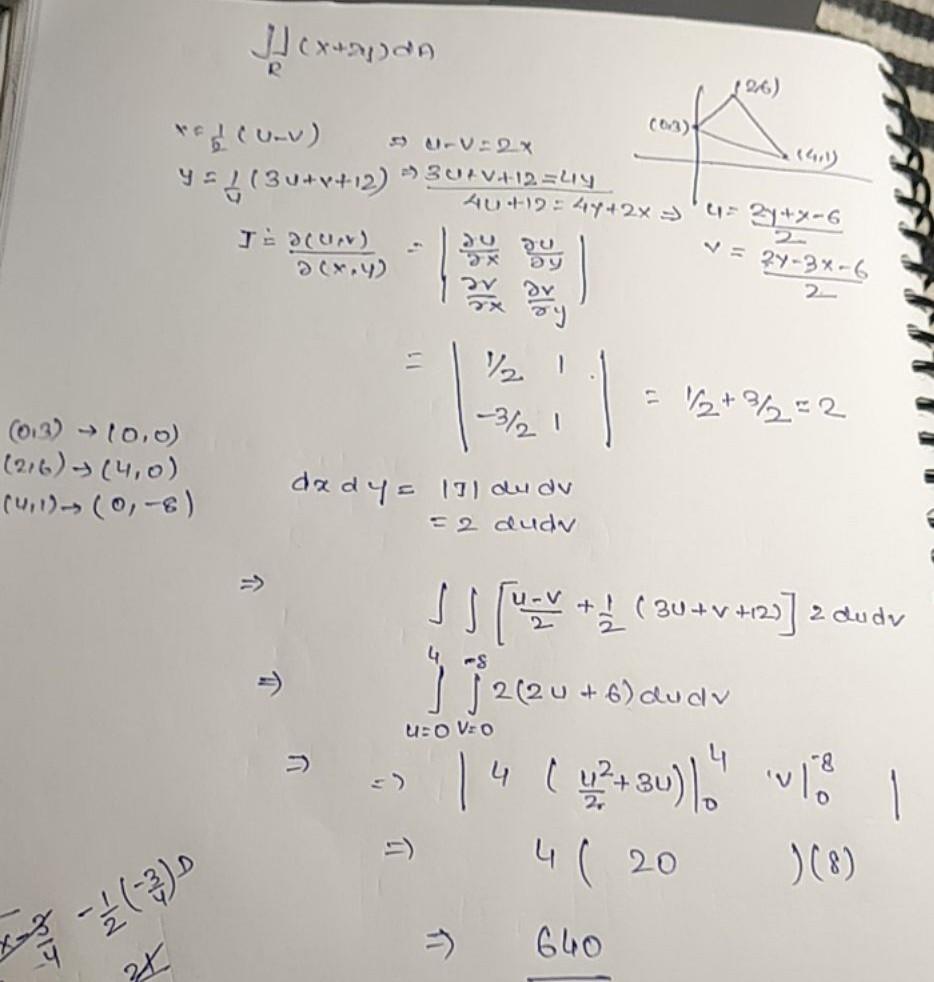 ∬_R (x+2y)dA
(2,6)
(0,3)
(4,1)
x = 1/2 (u-v) ⇒ u-v = 2x
y = 1/4 (3u+v+12) ⇒ 3u+v+12 = 4y
4u+12 = 4y+2x ⇒ u = (2y+x-6)/2
v = (2y-3x-6)/2
J = ∂(u,v)/∂(x,y) = | ∂u/∂x ∂u/∂y |
| ∂v/∂x ∂v/∂y |
= | 1/2 1 |
| -3/2 1 | = 1/2 + 3/2 = 2
(0,3) → (0,0)
(2,6) → (4,0)
(4,1) → (0,-8)
dx dy = |J| du dv
= 2 du dv
⇒ ∫∫ [ (u-v)/2 + 1/2 (3u+v+12) ] 2 du dv
⇒ ∫_{u=0}^{4} ∫_{v=0}^{-8} 2(2u+6) du dv
⇒ ⇒ | 4 (u²/2 + 3u) |_0^4 v|_0^-8 |
⇒ 4 ( 20 ) (8)
⇒ 640
-1/2 (-3/4)